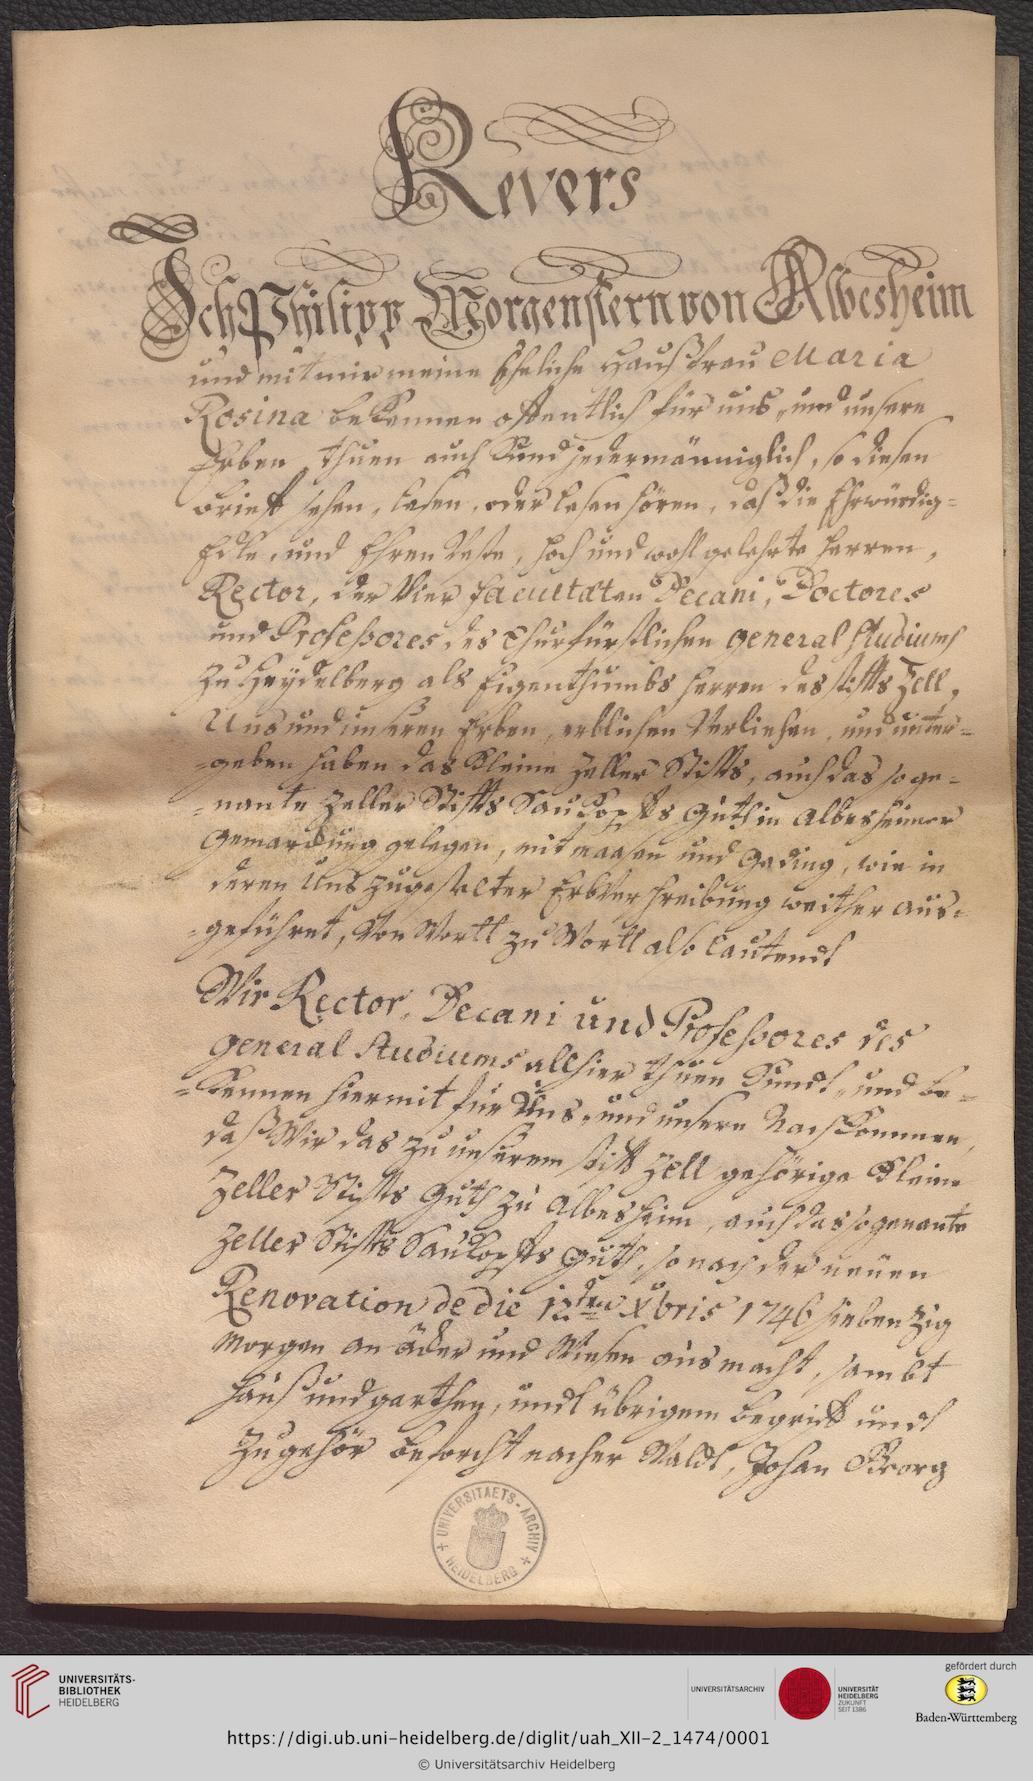 Revers
Ich Philipp Morgenstern von Albesheim
und mit mir meine Eheliche Haußfrau Maria
Rosina bekennen offentlich für uns, und unsere
Erben, thuen auch kund jedermänniglich, so diesen
brieff sehen, lesen, oder lesen hören, daß die Ehrwürdig-
Edle, und Ehren Veste, hoch und wohl gelehrte Herren,
Rector, der Vier Facultæten Decani, Doctores
und Professores, des Churfürstlichen general Studiums
zu Heydelberg als Eigenthumbs Herren des stiffts Zell,
Uns und unseren Erben, erblichen Verliehen, und unter-
-geben haben das Kleine Zeller Stiffts, auch das soge-
-nante Zeller Stiffts Saukopffs Guth in Albesheimer
Gemarckung gelegen, mit maasen und Geding, wie in
deren Uns zugestelter Erbverschreibung weither aus-
-geführet, Von Wortt zu Wortt also lautendt
Wir Rector, Decani und Professores des
general Studiums allhier thuen Kundt, und be-
-kennen hiermit für Uns, und unsere Nachkommen,
daß Wir das zu unserem stifft Zell gehörige Kleine
Zeller Stiffts Guth zu Albesheim, auch das sogenante
Zeller Stiffts Saukopffs Guth, so nach der neuen
Renovation de die 12ten Xbris 1746 siebenzig
Morgen an äcker und Wiesen ausmacht, sambt
Hauß und garthen, undt übrigem begriff undt
Zugehör beforcht nacher Waldt, Johan Georg
UNIVERSITAETS-ARCHIV
HEIDELBERG
UNIVERSITÄTS-
BIBLIOTHEK
HEIDELBERG
UNIVERSITÄTSARCHIV
UNIVERSITÄT
HEIDELBERG
ZUKUNFT
SEIT 1386
gefördert durch
Baden-Württemberg
https://digi.ub.uni-heidelberg.de/diglit/uah_XII-2_1474/0001
© Universitätsarchiv Heidelberg